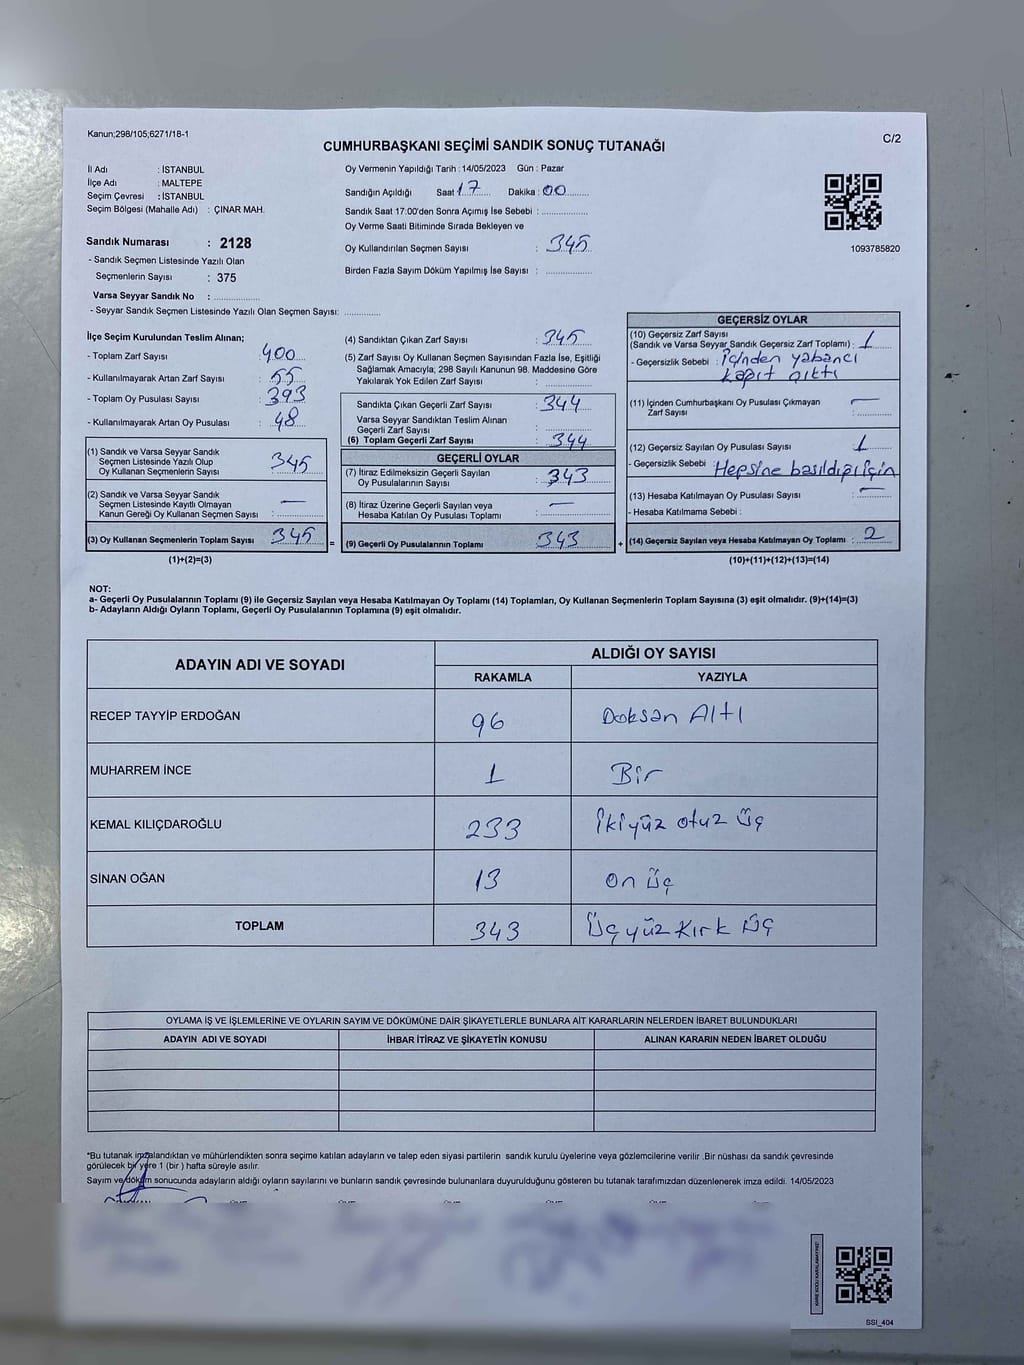 Kanun;298/105;6271/18-1
C/2
CUMHURBAŞKANI SEÇİMİ SANDIK SONUÇ TUTANAĞI
İl Adı : İSTANBUL
İlçe Adı : MALTEPE
Seçim Çevresi : İSTANBUL
Seçim Bölgesi (Mahalle Adı) : ÇINAR MAH.
Sandık Numarası : 2128
- Sandık Seçmen Listesinde Yazılı Olan
Seçmenlerin Sayısı : 375
Varsa Seyyar Sandık No : ..................
- Seyyar Sandık Listesinde Yazılı Olan Seçmen Sayısı: ..............
Oy Vermenin Yapıldığı Tarih : 14/05/2023 Gün : Pazar
Sandığın Açıldığı Saat 17 Dakika : 00
Sandık Saat 17:00'den Sonra Açımış İse Sebebi : ..................
Oy Verme Saati Bitiminde Sırada Bekleyen ve
Oy Kullandırılan Seçmen Sayısı : 345
Birden Fazla Sayım Döküm Yapılmış İse Sayısı : ..................
1093785820
İlçe Seçim Kurulundan Teslim Alınan;
- Toplam Zarf Sayısı : 400
- Kullanılmayarak Artan Zarf Sayısı : 55
- Toplam Oy Pusulası Sayısı : 393
- Kullanılmayarak Artan Oy Pusulası : 48
(1) Sandık ve Varsa Seyyar Sandık
Seçmen Listesinde Yazılı Olup
Oy Kullanan Seçmenlerin Sayısı 345
(2) Sandık ve Varsa Seyyar Sandık
Seçmen Listesinde Kayıtlı Olmayan
Kanun Gereği Oy Kullanan Seçmen Sayısı : —
(3) Oy Kullanan Seçmenlerin Toplam Sayısı : 345
(1)+(2)=(3)
(4) Sandıktan Çıkan Zarf Sayısı : 345
(5) Zarf Sayısı Oy Kullanan Seçmen Sayısından Fazla İse, Eşitliği
Sağlamak Amacıyla; 298 Sayılı Kanunun 98. Maddesine Göre
Yakılarak Yok Edilen Zarf Sayısı : ..................
Sandıkta Çıkan Geçerli Zarf Sayısı : 344
Varsa Seyyar Sandıktan Teslim Alınan
Geçerli Zarf Sayısı : ..................
(6) Toplam Geçerli Zarf Sayısı : 344
GEÇERLİ OYLAR
(7) İtiraz Edilmeksizin Geçerli Sayılan
Oy Pusulalarının Sayısı : 343
(8) İtiraz Üzerine Geçerli Sayılan veya
Hesaba Katılan Oy Pusulası Toplamı : —
=
(9) Geçerli Oy Pusulalarının Toplamı : 343
+
GEÇERSİZ OYLAR
(10) Geçersiz Zarf Sayısı
(Sandık ve Varsa Seyyar Sandık Geçersiz Zarf Toplamı) : 1
- Geçersizlik Sebebi : İçinden yabancı
kağıt çıktı
(11) İçinden Cumhurbaşkanı Oy Pusulası Çıkmayan
Zarf Sayısı : —
(12) Geçersiz Sayılan Oy Pusulası Sayısı : 1
- Geçersizlik Sebebi : Hepsine basıldığı için
(13) Hesaba Katılmayan Oy Pusulası Sayısı : —
- Hesaba Katılmama Sebebi :
(14) Geçersiz Sayılan veya Hesaba Katılmayan Oy Toplamı : 2
(10)+(11)+(12)+(13)=(14)
NOT:
a- Geçerli Oy Pusulalarının Toplamı (9) ile Geçersiz Sayılan veya Hesaba Katılmayan Oy Toplamı (14) Toplamları, Oy Kullanan Seçmenlerin Toplam Sayısına (3) eşit olmalıdır. (9)+(14)=(3)
b- Adayların Aldığı Oyların Toplamı, Geçerli Oy Pusulalarının Toplamına (9) eşit olmalıdır.
ADAYIN ADI VE SOYADI ALDIĞI OY SAYISI
RAKAMLA YAZIYLA
RECEP TAYYİP ERDOĞAN 96 Doksan Altı
MUHARREM İNCE 1 Bir
KEMAL KILIÇDAROĞLU 233 İkiyüz otuz üç
SİNAN OĞAN 13 on üç
TOPLAM 343 Üçyüz Kırk Üç
OYLAMA İŞ VE İŞLEMLERİNE VE OYLARIN SAYIM VE DÖKÜMÜNE DAİR ŞİKAYETLERLE BUNLARA AİT KARARLARIN NELERDEN İBARET BULUNDUKLARI
ADAYIN ADI VE SOYADI İHBAR İTİRAZ VE ŞİKAYETİN KONUSU ALINAN KARARIN NEDEN İBARET OLDUĞU
*Bu tutanak imzalandıktan ve mühürlendikten sonra seçime katılan adayların ve talep eden siyasi partilerin sandık kurulu üyelerine veya gözlemcilerine verilir .Bir nüshası da sandık çevresinde
görülecek bir yere 1 (bir ) hafta süreyle asılır.
Sayım ve döküm sonucunda adayların aldığı oyların sayılarını ve bunların sandık çevresinde bulunanlara duyurulduğunu gösteren bu tutanak tarafımızdan düzenlenerek imza edildi. 14/05/2023
SSI_404